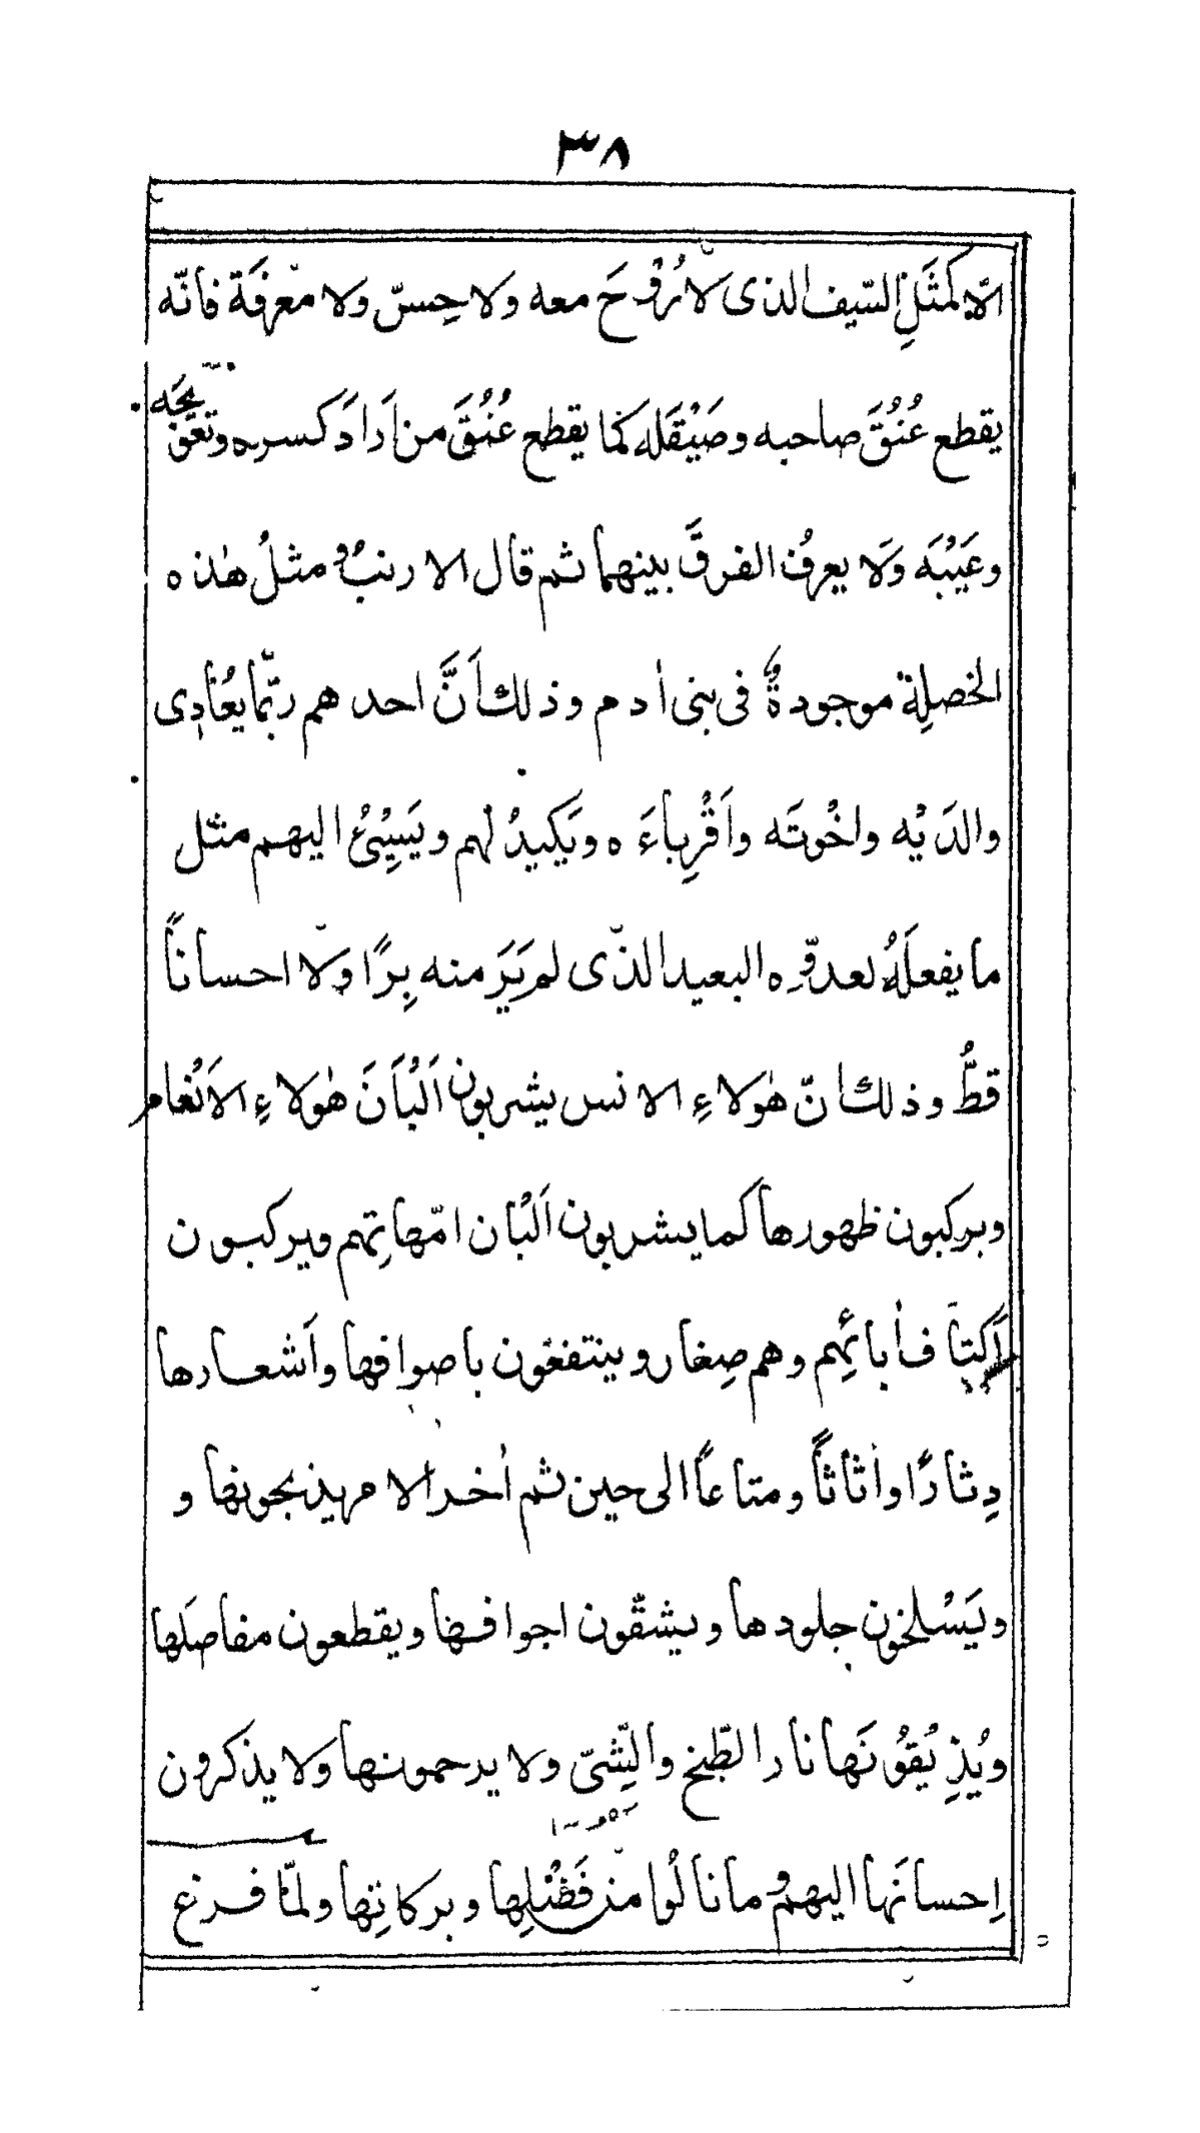 ٣٨
الّا كمَثَلِ السّيف الذى لا رُوْحَ معه ولا حِسّ ولا معْرفَة فانّه
يقطع عُنُقَ صاحبه وصَيْقَله كما يقطع عُنُقَ من اَرادَ كسره وتعوّيجَه
وعَيْبَه وَلا يعرفُ الفرقَ بينهما ثم قال الارنبُ و مثلُ هٰذه
الخصلِة موجودةٌ فى بنى اٰدم وذلك اَنَّ احدهم ربّما يعُادِى
والدَيْه واخْوتَه واَقْرِباءَه ويَكيدُ لهم ويَسِيْئُ اليهم مثل
ما يفعلَهُ لعدوِّه البعيد الذّى لم يَرَ منه بِرًا ولا احسانًا
قطُّ وذلك انّ هٰولاءِ الانس يشربون اَلْبُاَنَ هٰولاءِ الاَنْعام
ويركبون ظهورها كما يشربون اَلْبُان امّهاتِهم ويركبون
اَكتاف اٰبائِهم وهم صِغار وينتفعون باصوافها واَشعارها
دِثارًا واٰثاثاً ومتاعاً الى حين ثم اٰخر الامر يذبحونها و
ويَسْلخون جلودها ويشقّون اجوافها ويقطعون مفاصَلها
ويُذِيْقوُنَها نار الطّبخ والشّىّ ولا يرحمونها ولا يذكرون
اِحسانَها اليهم وما نالُوا من فَضْلِها وبركاتِها ولمّا فرغ